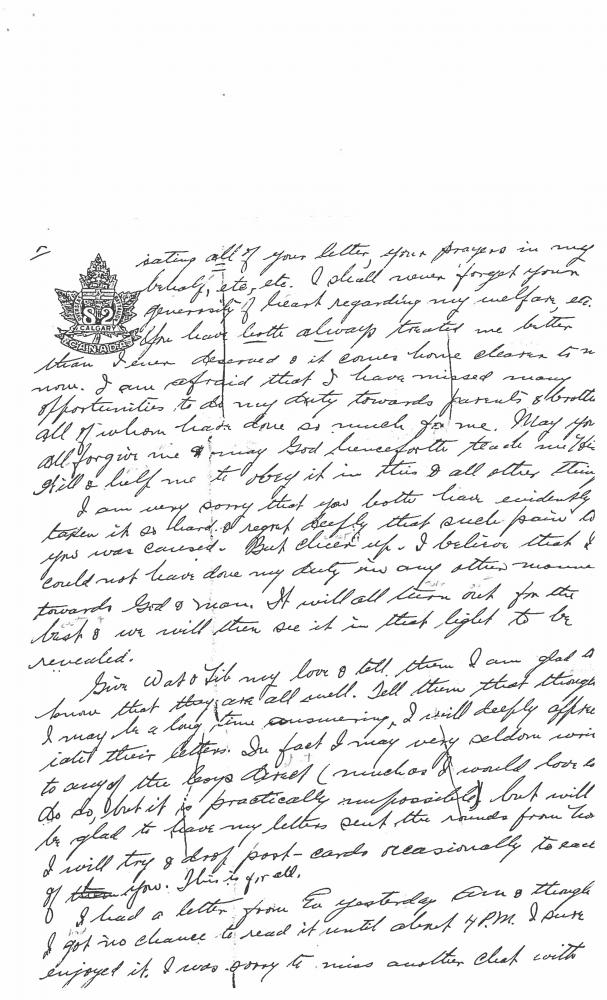 5
82
CALGARY
CANADA
iating all of your letter, your prayers in my
behalf, etc, etc. I shall never forget your
generosity of heart regarding my welfare, etc.
You have both always treated me better
than I ever deserved & it comes home clearer to m
now. I am afraid that I have missed many
opportunities to do my duty towards parents & brothe
all of whom have done so much for me. May you
all forgive me & may God henceforth teach me His
Will & help me to obey it in this & all other thing
I am very sorry that you both have evidently
taken it so hard & regret deeply that such pain to
you was caused. But cheer up. I believe that I
could not have done my duty in any other manne
towards God & man. It will all turn out for the
best & we will then see it in that light to be
revealed.
Give Wat & Lib my love & tell them I am glad to
know that they are all well. Tell them that though
I may be a long time answering, I will deeply appre
iate their letters. In fact I may very seldom write
to any of the boys direct (much as I would love to
do so, but it is practically impossible) but will
be glad to have my letters sent the rounds from ho
I will try & drop post-cards occasionally to eac
of them you. This is for all.
I had a letter from Ev yesterday Am & though
I got no chance to read it until about 4 P.M. I sure
enjoyed it. I was sorry to miss another chat with